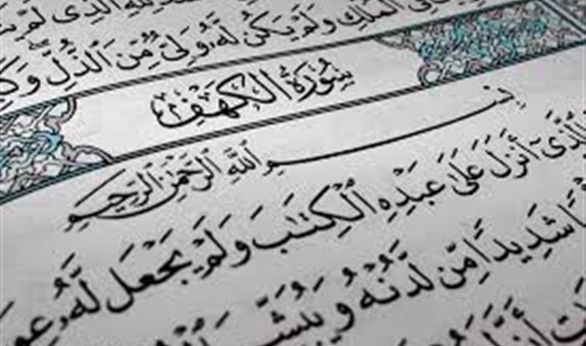 ٱلَّذِى لَمْ
ٱلْمُلْكِ وَلَمْ يَكُن لَّهُۥ وَلِىٌّ مِّنَ ٱلذُّلِّ وَكَ
سُورَةُ الكَهْفِ
بِسْمِ ٱللَّهِ ٱلرَّحْمَٰنِ ٱلرَّحِيمِ
ٱلَّذِىٓ أَنزَلَ عَلَىٰ عَبْدِهِ ٱلْكِتَٰبَ وَلَمْ يَجْعَل لَّهُۥ عِوَ
شَدِيدًا مِّن لَّدُنْهُ وَيُبَشِّ